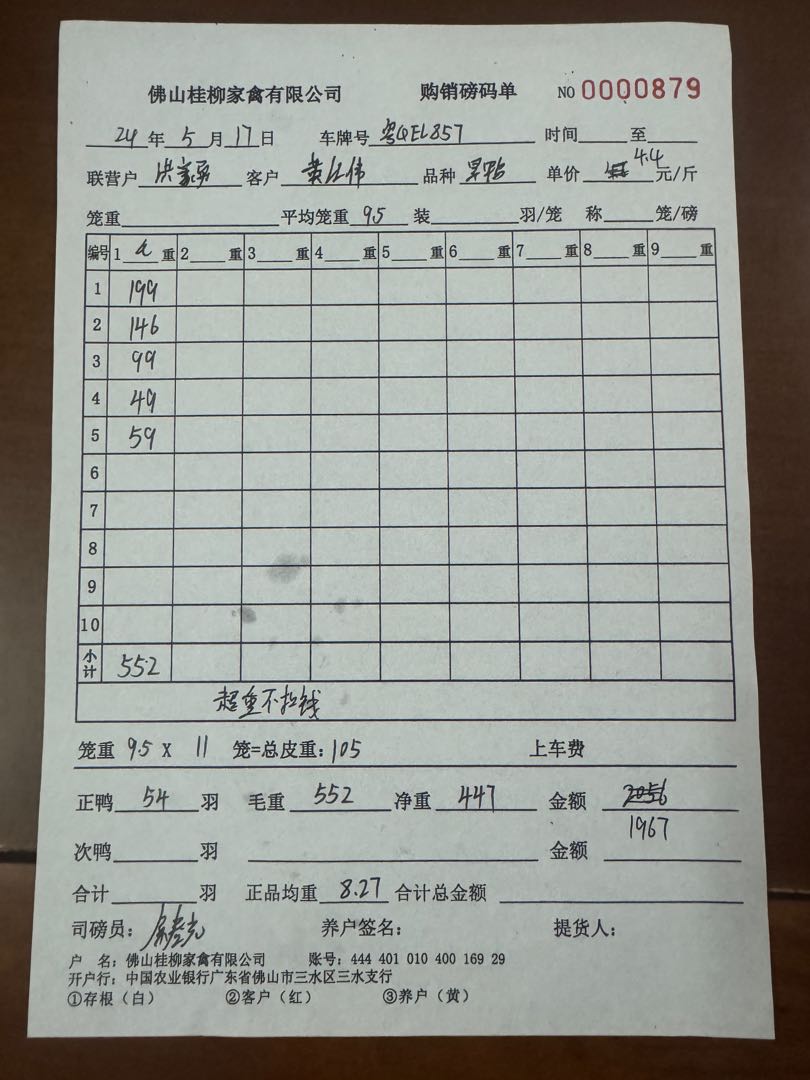 佛山桂柳家禽有限公司 购销磅码单 NO 0000879
24 年 5 月 17 日 车牌号 粤QEL857 时间 至
联营户 洪 客户 黄 伟 品种 单价 4.4 元/斤
笼重 平均笼重 9.5 装 羽/笼 称 笼/磅
编号 1 重 2 重 3 重 4 重 5 重 6 重 7 重 8 重 9 重
1 199
2 146
3 99
4 49
5 59
6
7
8
9
10
小计 552
超重不扣钱
笼重 9.5 X 11 笼=总皮重: 105 上车费
正鸭 54 羽 毛重 552 净重 447 金额 2056
1967
次鸭 羽 金额
合计 羽 正品均重 8.27 合计总金额
司磅员: 养户签名: 提货人:
户 名: 佛山桂柳家禽有限公司 账号: 444 401 010 400 169 29
开户行: 中国农业银行广东省佛山市三水区三水支行
①存根(白) ②客户(红) ③养户(黄)